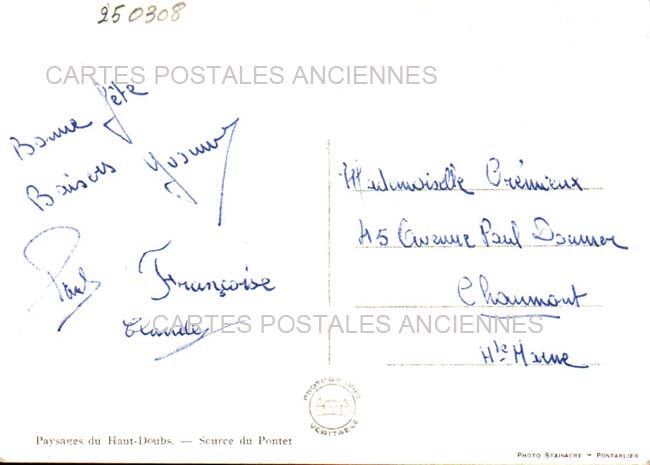 250308
CARTES POSTALES ANCIENNES
Bonne fête
Baisers Yvonne
Paul
Françoise
Claude
Mademoiselle Crémieux
45 Avenue Paul Doumer
Chaumont
Hte Marne
CARTES POSTALES ANCIENNES
PHOTOGRAPHIE
VÉRITABLE
Paysages du Haut-Doubs. — Source du Pontet
PHOTO STAINACRE – PONTARLIER